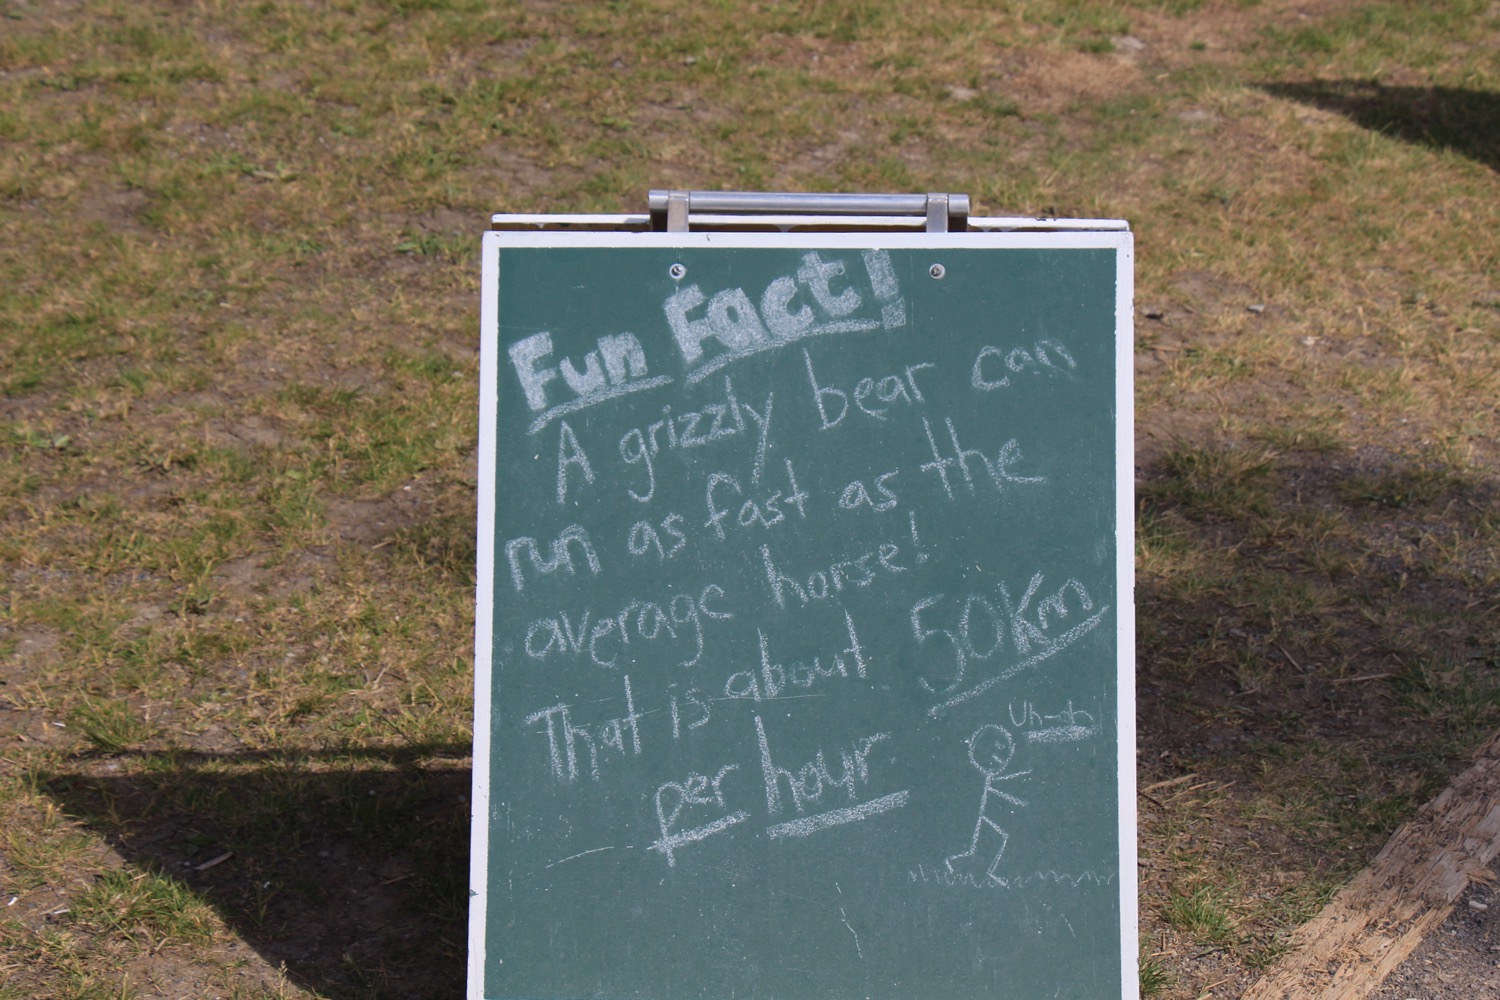 Fun Fact!
A grizzly bear can
run as fast as the
average horse!
That is about 50Km
per hour
Uh-oh